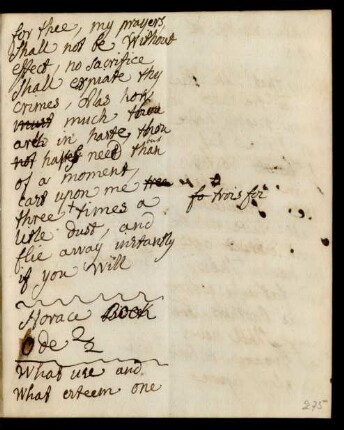 for thee, my prayers,
shall not be Without
effect, no sacrifice
shall expiate thy
crimes, Alas how
must much thou
art in haste, thou
not hast need than
of a moment,
cast upon me
three times a
litle dust, and
flie away instantly
if you will
Horace Book
Ode 2
What use and
What esteem one
275